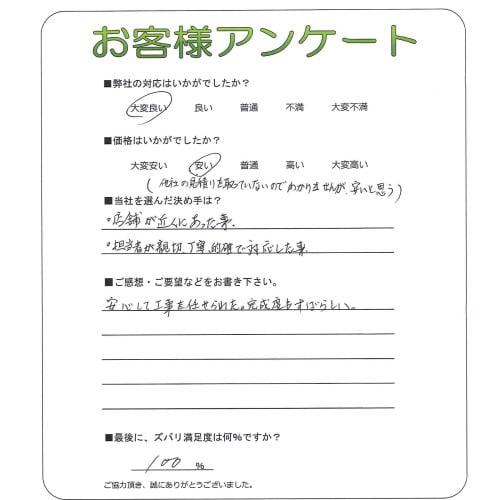 お客様アンケート
■弊社の対応はいかがでしたか?
大変良い 良い 普通 不満 大変不満
■価格はいかがでしたか?
大変安い 安い 普通 高い 大変高い
(他社の見積りを取っていないのでわかりませんが、安いと思う)
■当社を選んだ決め手は?
・店舗が近くにあった事。
・担当者が親切、丁寧、的確で対応した事。
■ご感想・ご要望などをお書き下さい。
安心して工事を任せられた。完成度もすばらしい。
■最後に、ズバリ満足度は何%ですか?
100 %
ご協力頂き、誠にありがとうございました。